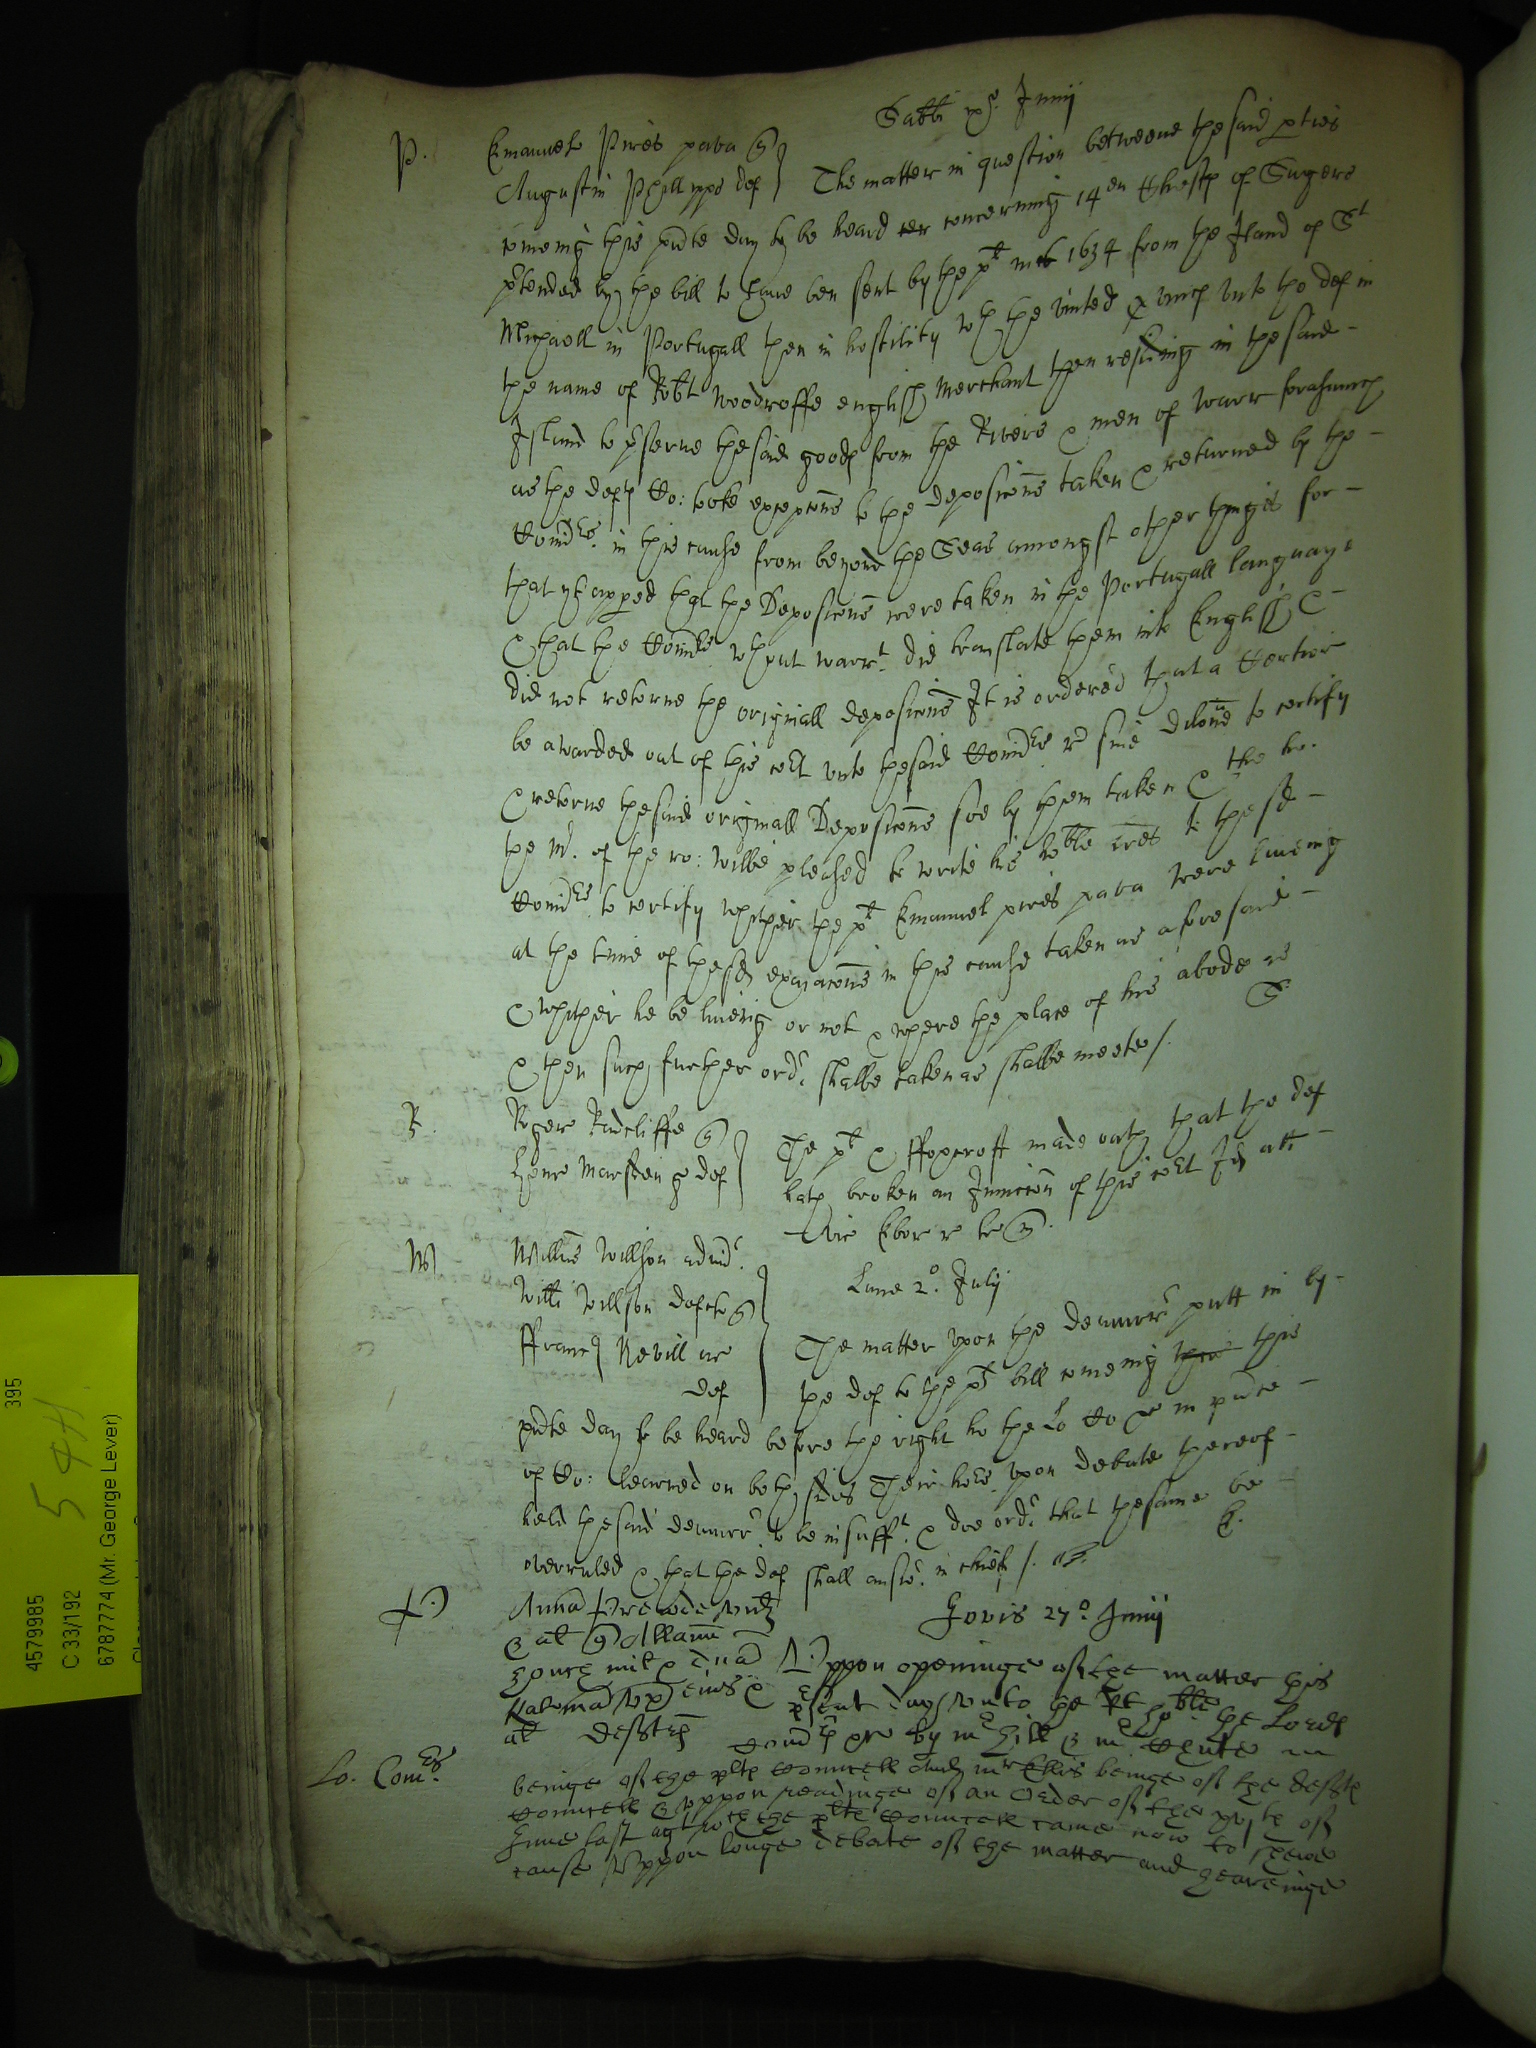 Sabti Junij
P. Emanuel Pires pava q
Augustin Phillipps def } The matter in question betweene the said pties
comeing this pnte day to be heard concerning 14en Chests of Sugers
ptended by the bill to have ben sent by the plt in 1634 from the Iland of St
Michaell in Portugall then in hostility wth the united unto the def in
the name of Robt Woodroffe english Merchant then resideing in the said
Island to pserve the said goods from the & men of warr forasmuch
as the defts Co: tooke excepcons to the deposicons taken & returned by the
Comrs in this cause from beyond the Seas amongst other things for
that yt appeed that the Deposicons were taken in the Portugall language
& that the Comrs wthout warrt did translate them into English &
did not returne the originall deposicons It is ordered that a Certior
be awarded out of this cort unto the said Comrs to certify
& returne the said originall Deposicons soe by them taken & the ho.
the Mr. of the ro: wilbe pleased to write his hoble lres to the sd
Comrs to certify whither the plt Emanuel pires pava were liveing
at the time of these exaiacons in this cause taken as aforesaid
& whither he be liveing or not & where the place of his abode is
& then such further ordr shalbe taken as shalbe meete /. S
R. Roger Radcliffe q
Henr Marsden def } The plt & ffoxcroft made oath that the def
hath broken an Iniuncon of this cort Io att
vic Ebor
W Willms Willson admr
Willi Willson defcti q
ffranc Nevill ar
def } Lune 2o. Julij
The matter upon the demurr putt in by
the def to the plts bill comeing this
pnte day to be heard before the right ho the Lo Co in pnce
of Co: learned on both sides Their hors upon debate thereof
held the said demurr to be insufft. & doe ordr that the same be
overruled & that the def shall answ. in chief /. E.
Anna
& al q Allanum
mil & dna
eius &
al defftes } Jovis 27o Junij
Uppon openinge of the matter this
psent day unto the Rt hoble the Lords
Lo. Comrs. Comrs by mr Hill & mr
beinge of the plts Councell and mr Ellis beinge of the deffts
Councell & uppon readinge of an Order of the of
June last the plts Councell came now to shewe
cause Uppon longe debate of the matter and heareinge
395
541
4579985
C 33/192
6787774 (Mr. George Lever)